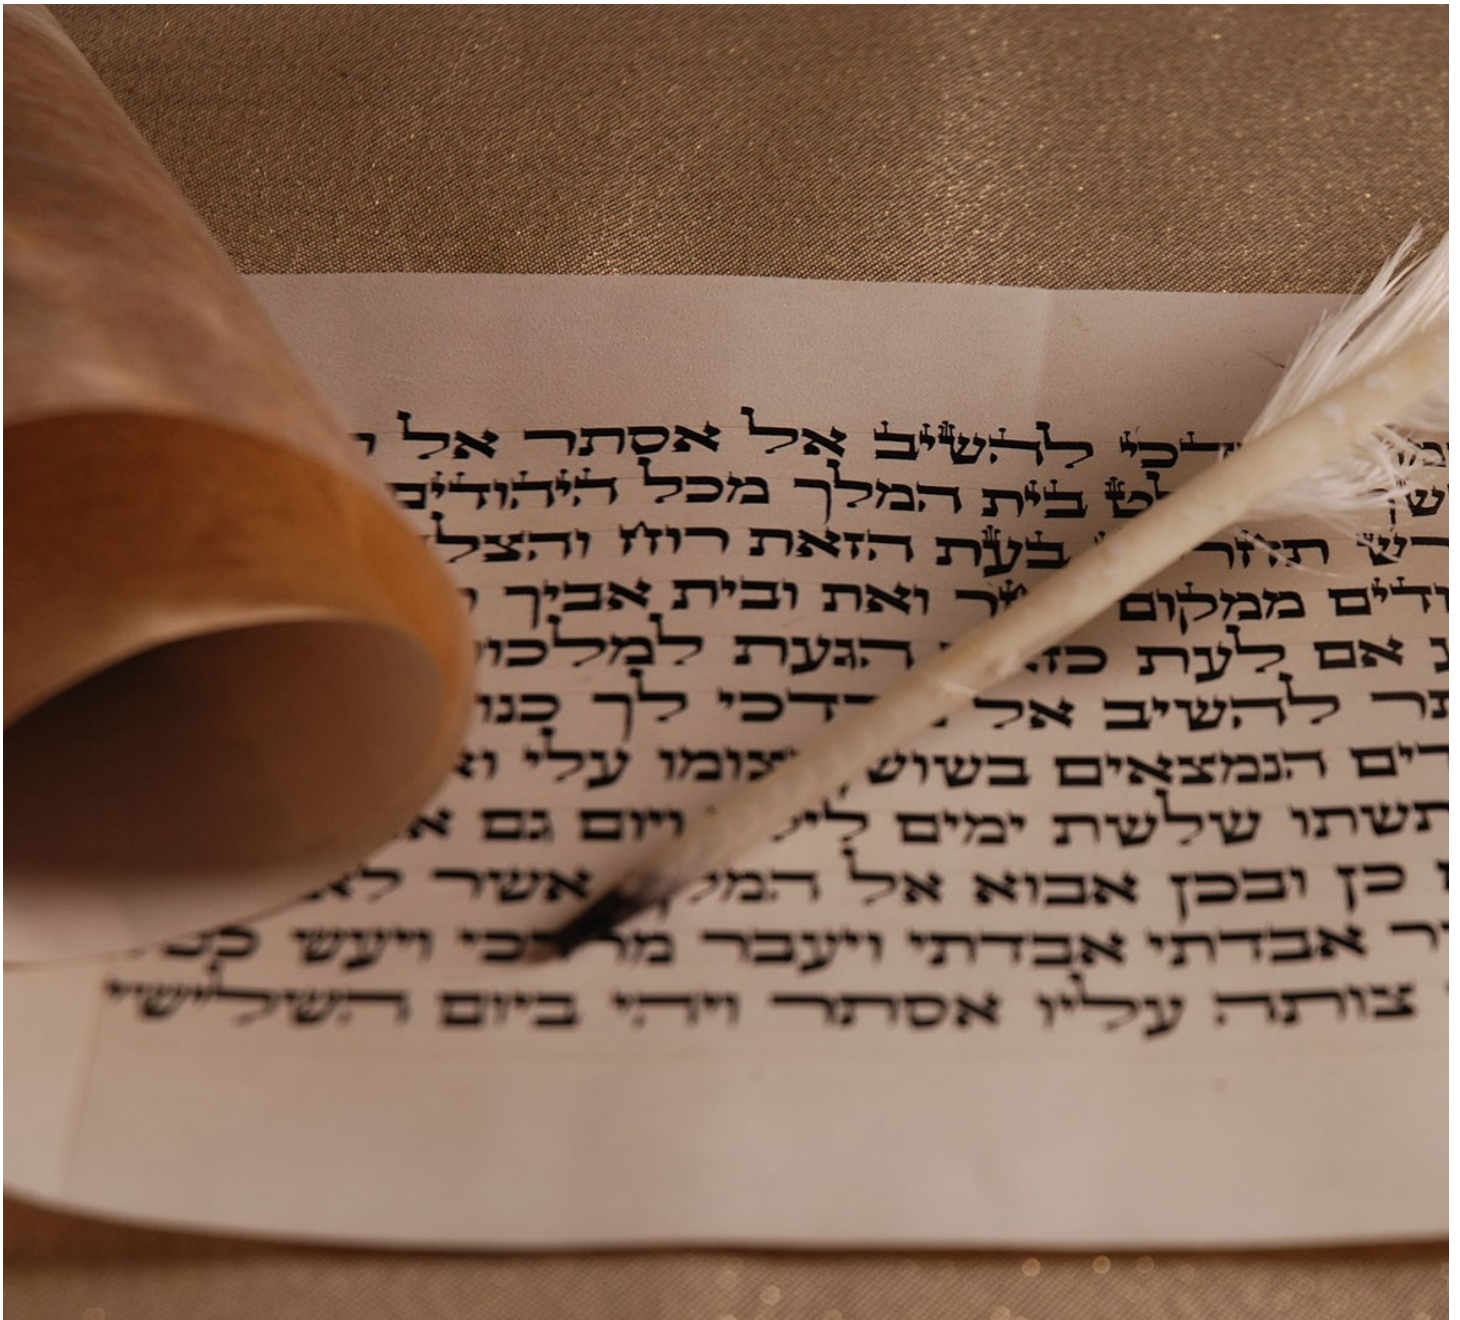 להשיב אל אסתר אל
בית המלך מכל היהודים
בעת הזאת רוח והצל
ודים ממקום אחר ואת ובית אביך
אם לעת הגעת למלכו
תר להשיב אל רדכי לך כנו
דים הנמצאים בשוש צומו עלי וא
תשתו שלשת ימים ויום גם א
כן ובכן אבוא אל המלך אשר לא
אבדתי אבדתי ויעבר מרדכי ויעש
צותה עליו אסתר ויהי ביום השלישי